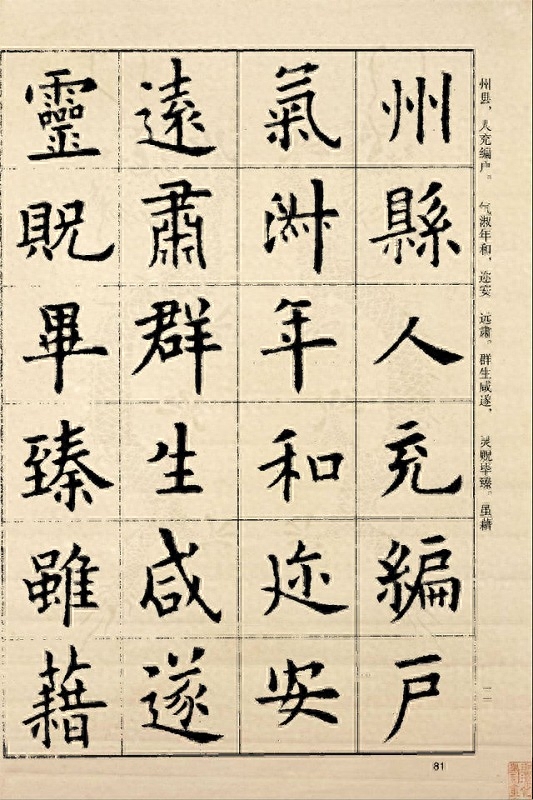 州县，人充编户。 气淑年和，迩安 远肃。群生咸遂， 灵贶毕臻。虽藉
州縣人充編戶
氣淑年和迩安
遠肅群生咸遂
靈貺畢臻雖藉
81